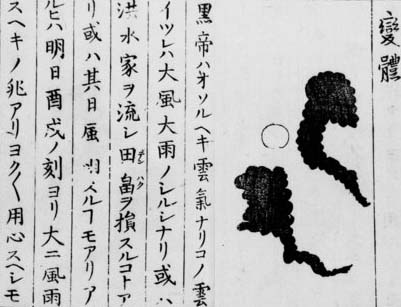 變體
黒帝ハオソルヘキ雲氣ナリコノ雲
イツレハ大風大雨ノシルシナリ或ハ
洪水家ヲ流シ田畠ヲ損スルコトア
リ或ハ其日風 スルコモアリア
ルヒハ明日酉戌ノ刻ヨリ大ニ風雨
スヘキノ兆アリヨク〱用心スヘシモ